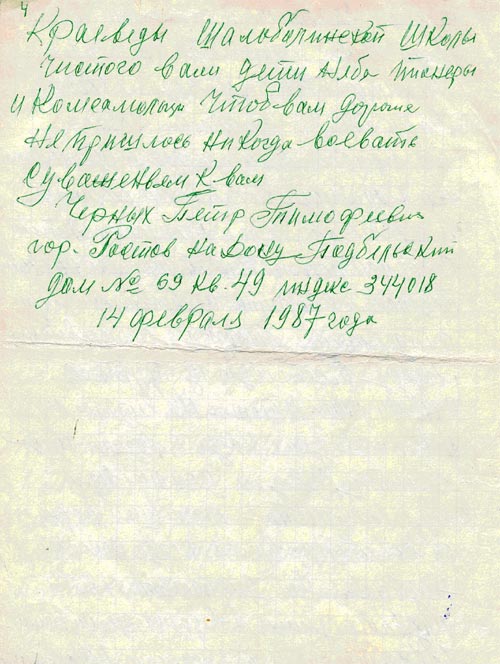 4
Краеведы Шалоболинской школы
чистого вам дети неба пионеры
и комсамольцы чтоб вам дороги
не пришлось никогда воевать
суважением к вам
Черных Петр Тимофеевич
гор. Ростов на Дону Подбельский
дом № 69 кв. 49 индекс 344018
14 февраля 1987 года